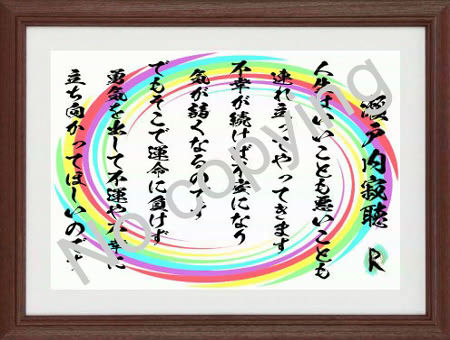 瀬戸内寂聴
人生はいいことも悪いことも
連れ立ってやってきます
不幸が続けば不安になり
気が弱くなるのです
でもそこで運命に負けず
勇気を出して不運や不幸に
立ち向かってほしいのです
R
No copying